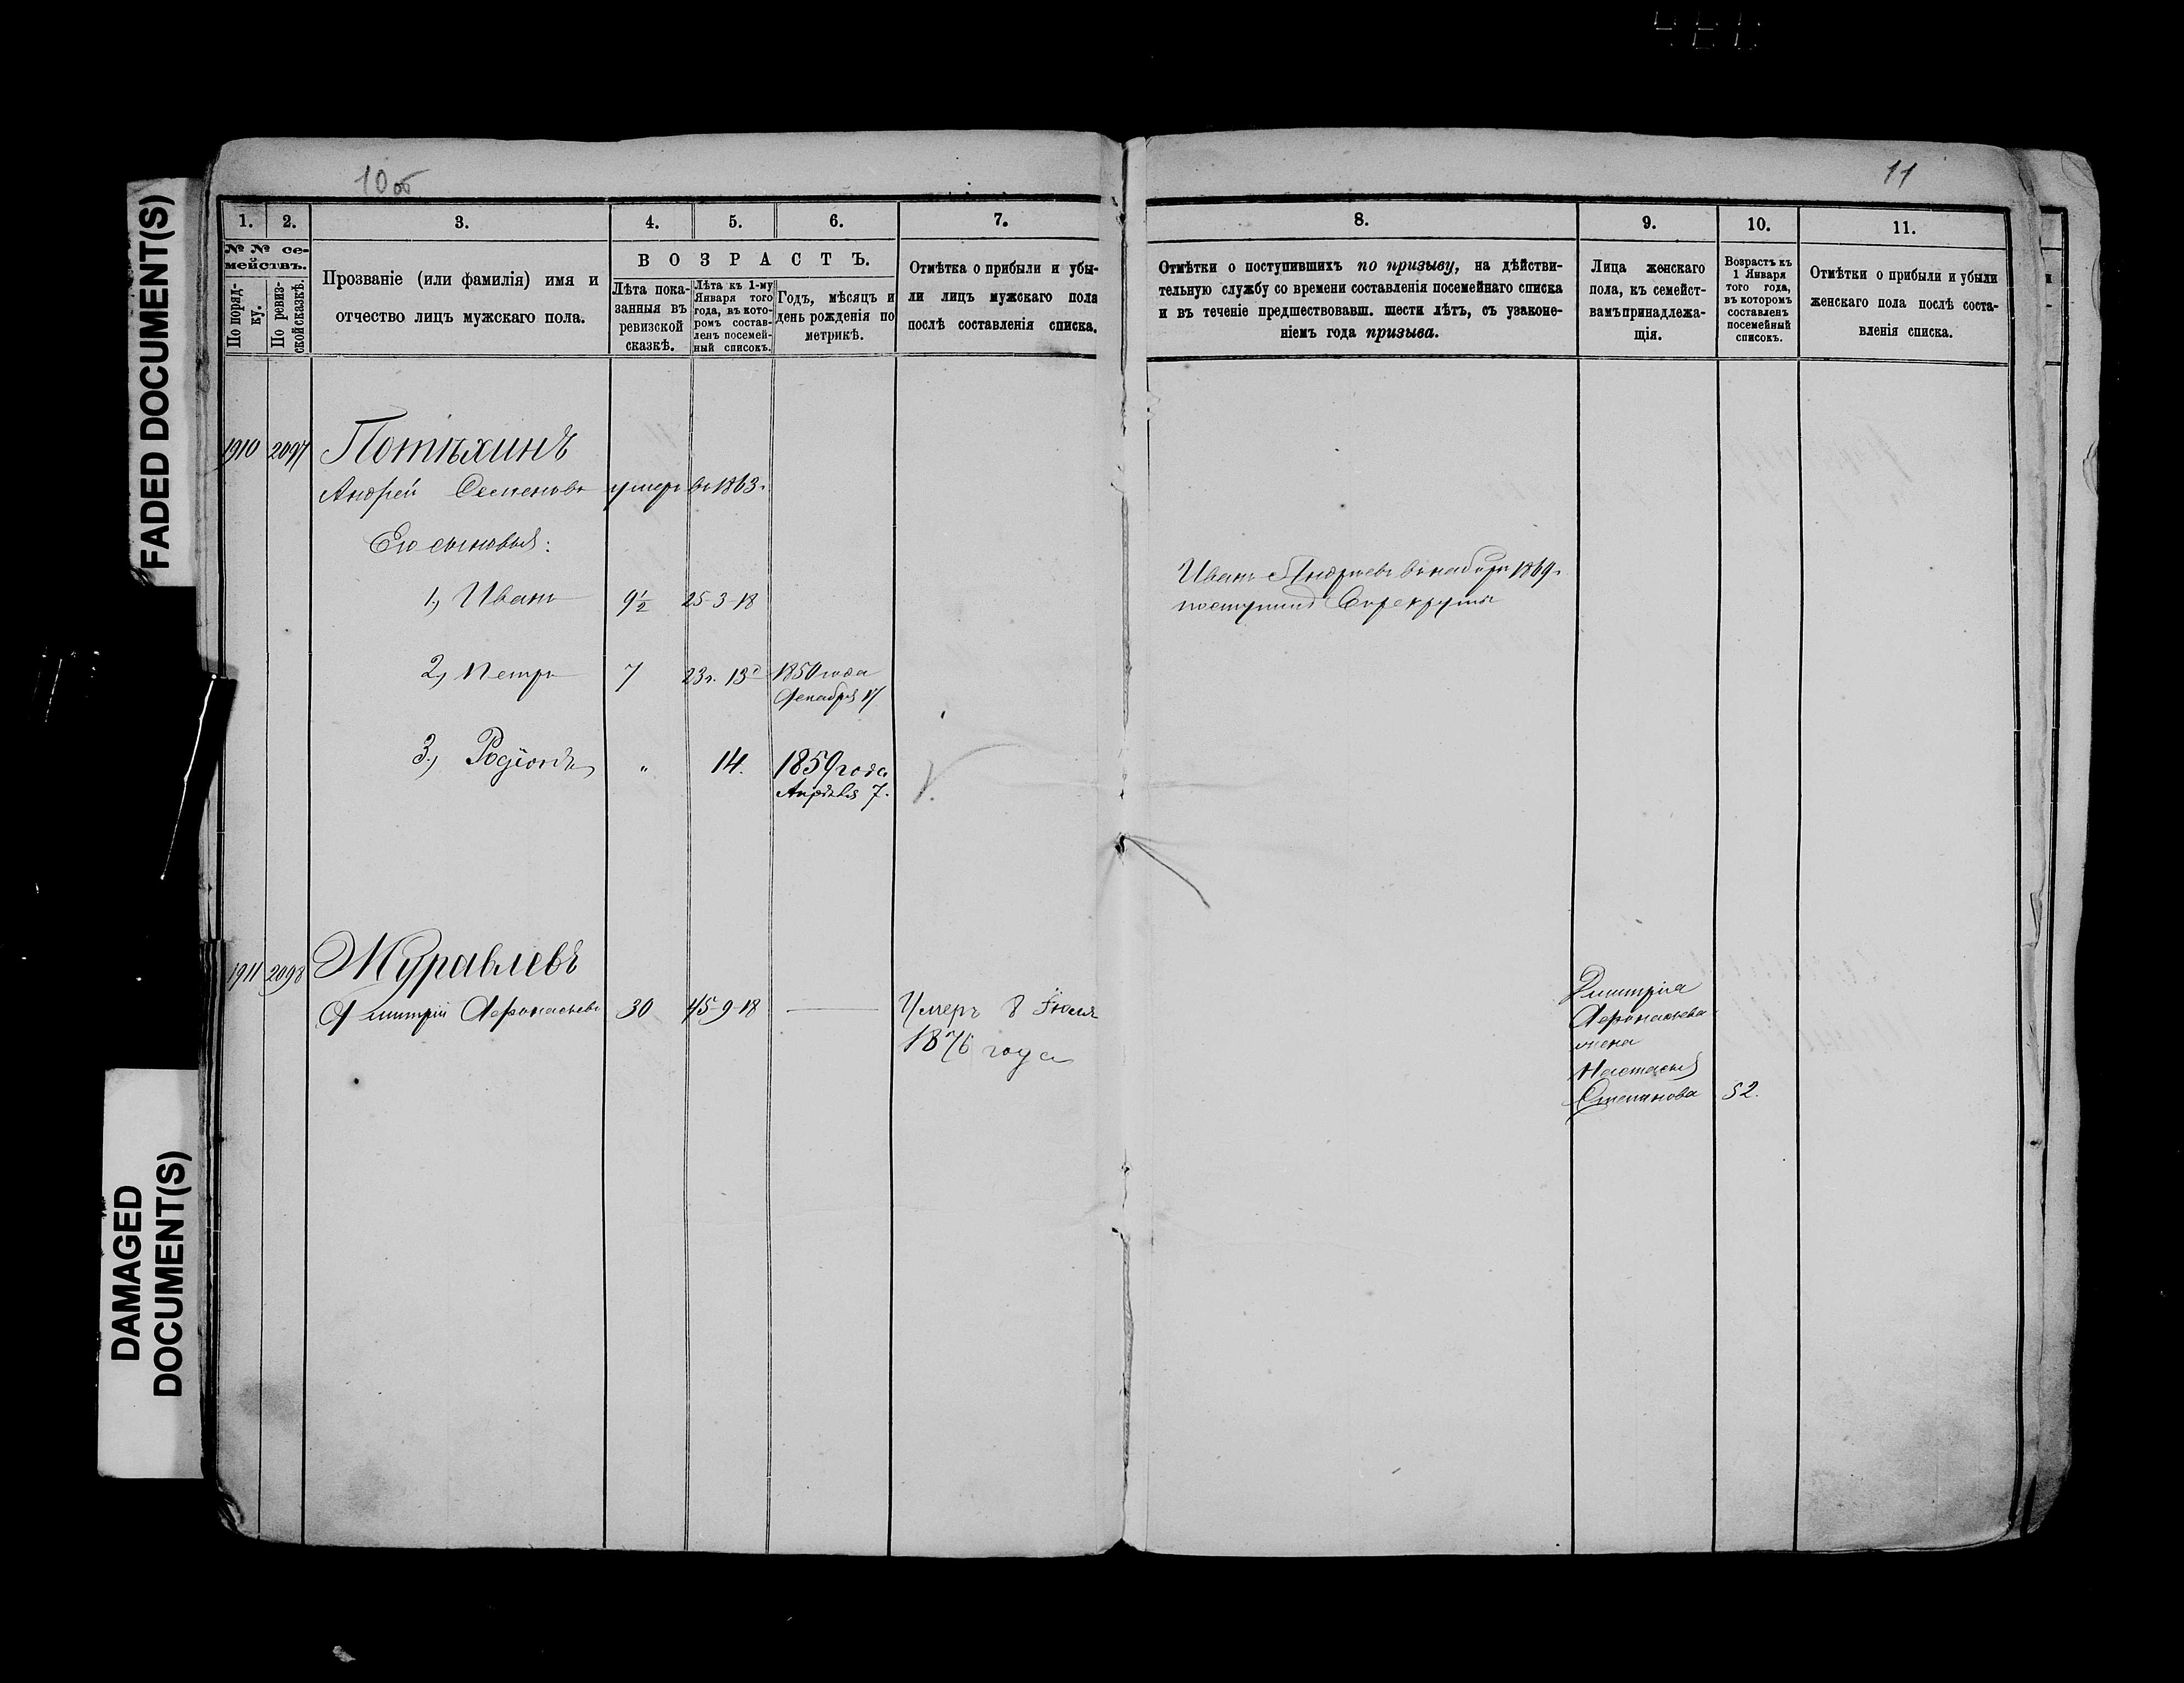 FADED DOCUMENT(S)
DAMAGED
DOCUMENT(S)
10 об
1. 2. 3. 4. 5. 6. 7.
№ № се-
мействъ.
По поряд-
ку.
По ревиз-
ской сказкѣ.
Прозваніе (или фамилія) имя и
отчество лицъ мужскаго пола.
ВОЗРАСТЪ.
Лѣта пока-
занныя въ
ревизской
сказкѣ.
Лѣта къ 1-му
Января того
года, въ кото-
ромъ состав-
ленъ посемей-
ный списокъ.
Годъ, мѣсяцъ и
день рожденія по
метрикѣ.
Отмѣтка о прибыли и убы-
ли лицъ мужскаго пола
послѣ составленія списка.
1910 2097 Потѣхинъ
Андрей Семеновъ умеръ въ 1863 г.
Его сыновья:
1, Иванъ 9½ 25-3-18
2, Петръ 7 23 г. 13 д 1850 года
Декабря 17
3, Родіонъ " 14. 1859 года
Апрѣля 7.
1911 2098 Журавлевъ
Дмитрій Афонасьевъ 30 45-9-18 — Умеръ 8 Іюля
1876 года
11
8. 9. 10. 11.
Отмѣтки о поступившихъ по призыву, на дѣйстви-
тельную службу со времени составленія посемейнаго списка
и въ теченіе предшествовавш. шести лѣтъ, съ узаконе-
ніемъ года призыва.
Лица женскаго
пола, къ семейст-
вамъ принадлежа-
щія.
Возрастъ къ
1 Января
того года,
въ которомъ
составленъ
посемейный
списокъ.
Отмѣтки о прибыли и убыли
женскаго пола послѣ соста-
вленія списка.
Иванъ Андреевъ въ наборъ 1869 г.
поступилъ въ рекруты
Дмитрія
Афонасьева
жена
Настасья
Степанова 52.